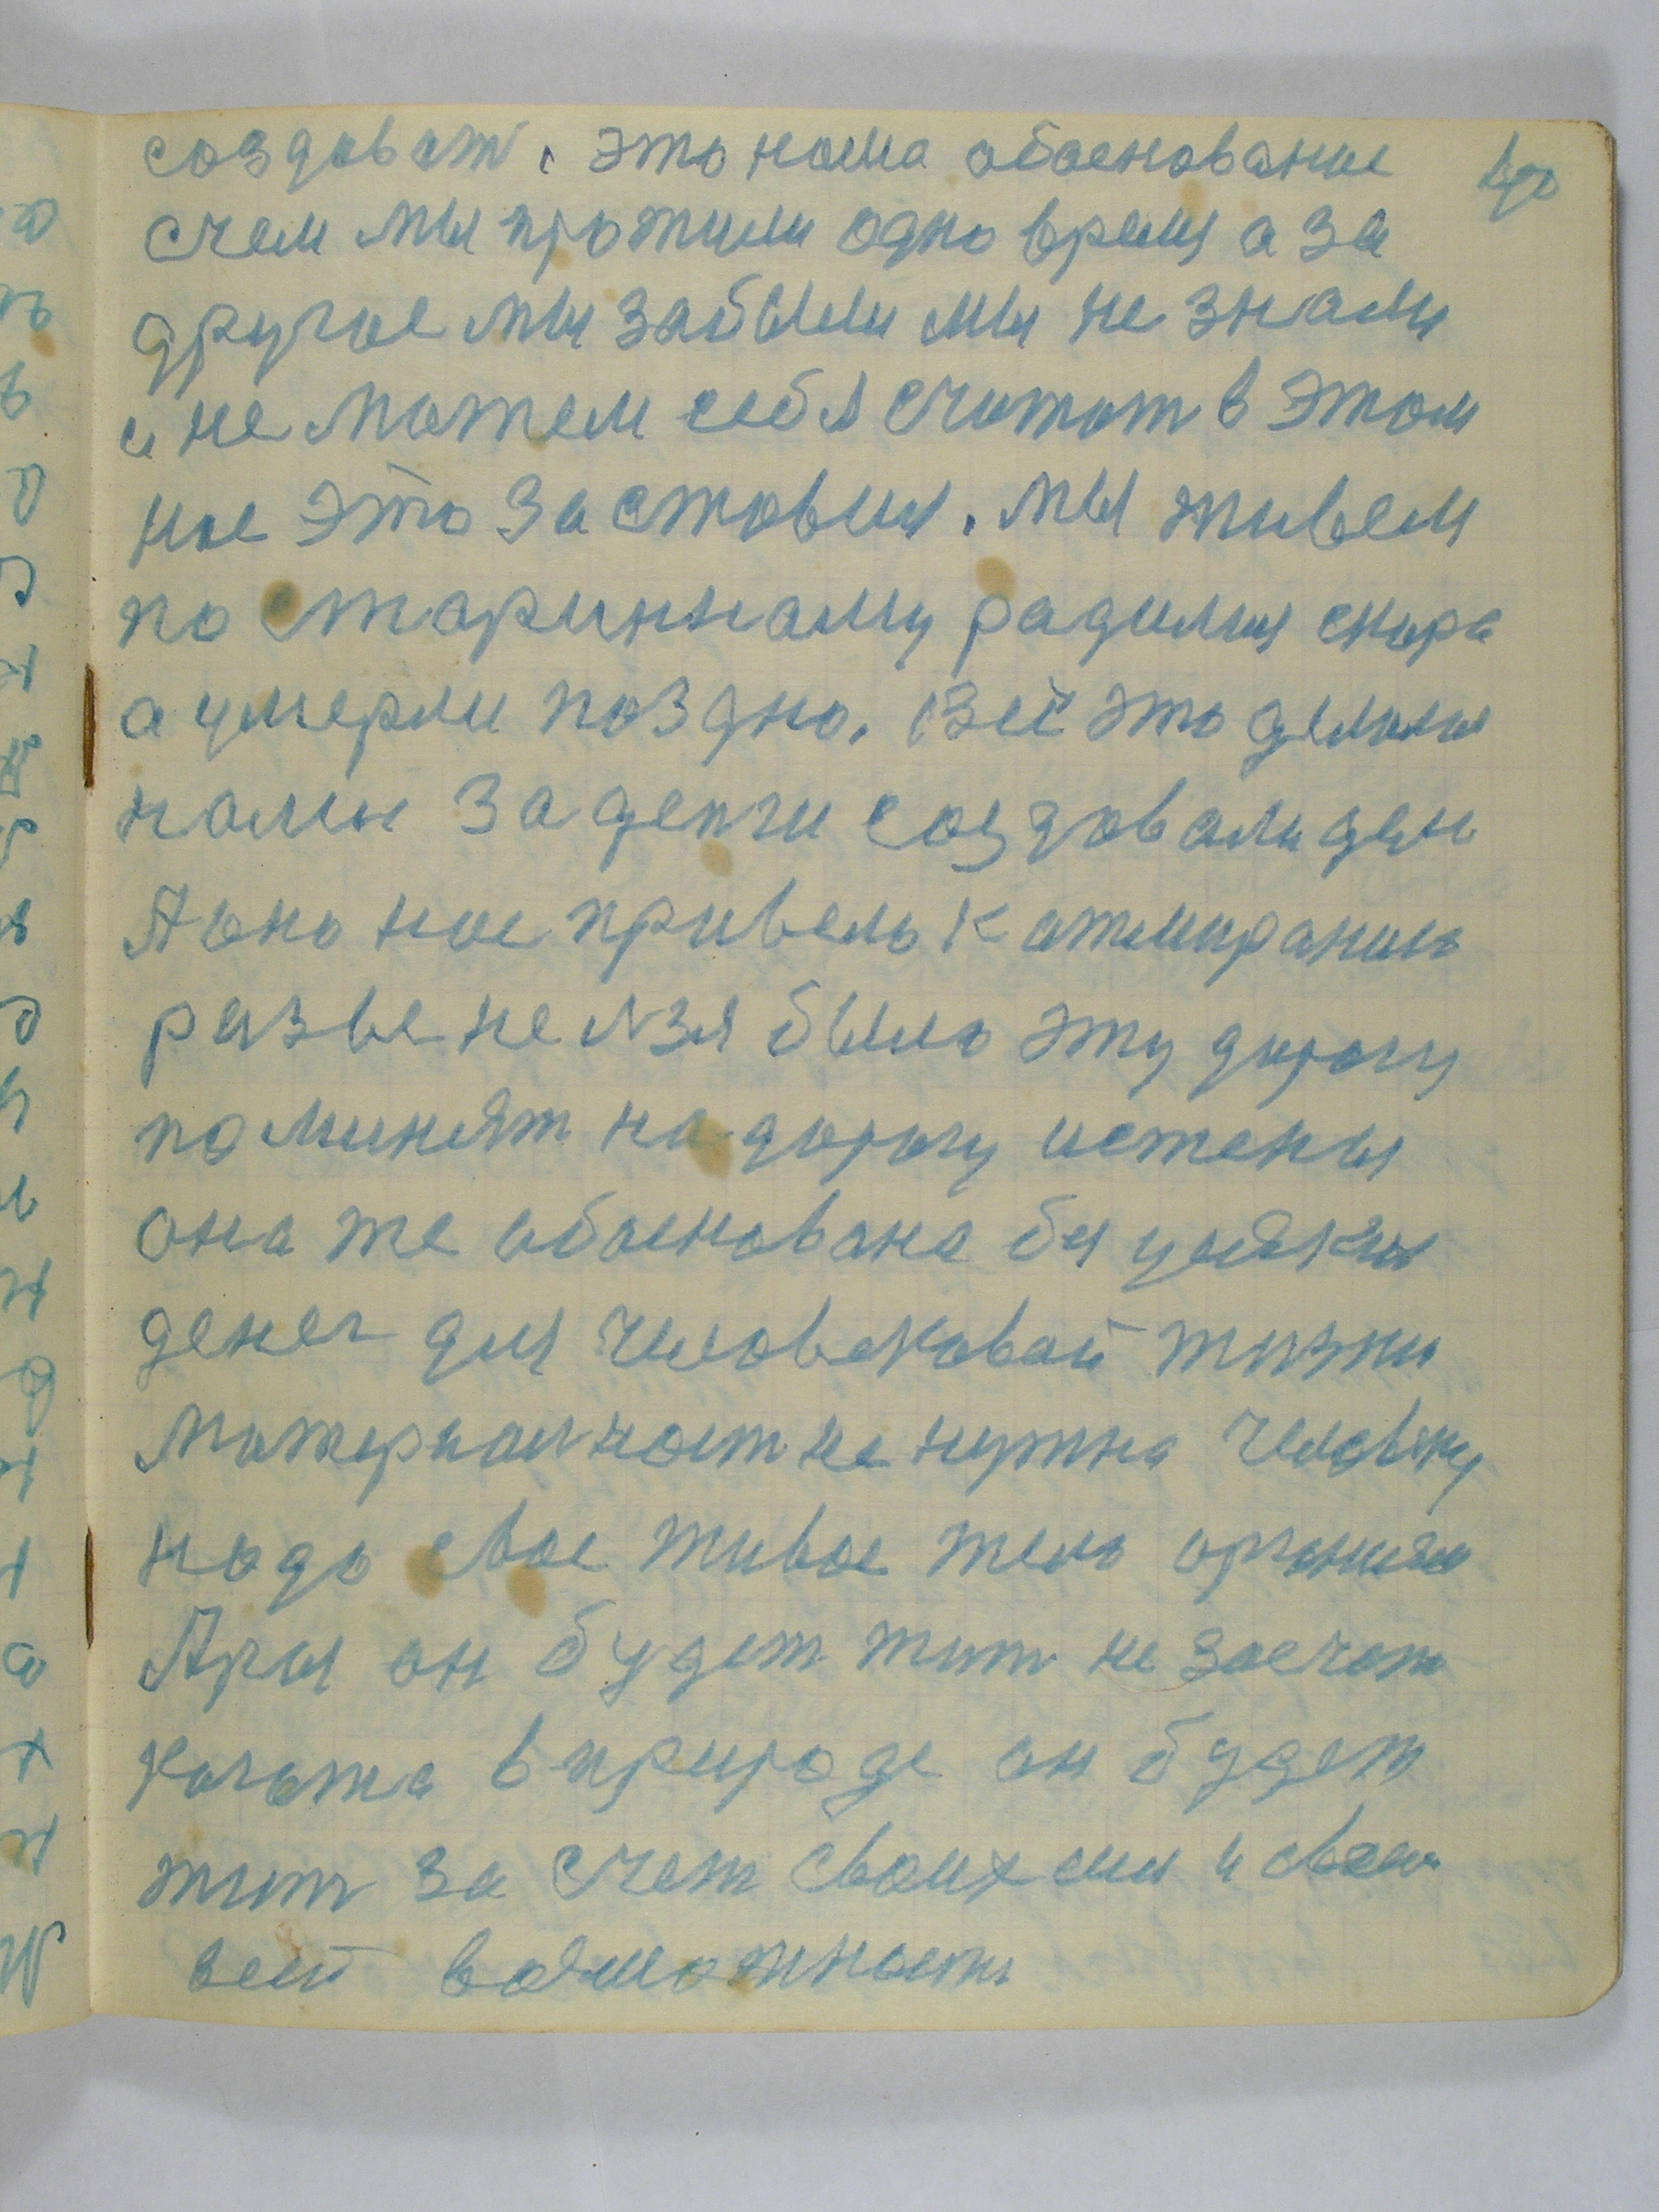 создават. это наша обаснование
счем мы прожили одно время а за
другое мы забыли мы не знали
и не можем себя считат в этом
нас это заставил. мы живем
по старинному радилися скора
а умерли поздно. Всё это делалося
нами за денги создовали ден
А оно нас привело к атмиранию
разве нелзя было эту дорогу
поминят на дорогу истены
она же обаснована без усяких
денег для человековай жизни
Материалност не нужна человеку
надо свое живое тело организм
При он будет жит не засчет
когота в природе он будет
жит за счет своих сил и своей
всей возможности